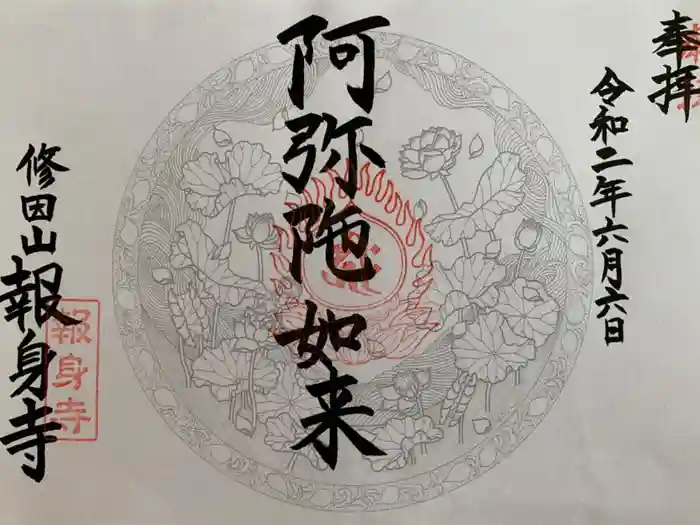 奉拝
令和二年六月六日
阿弥陀如来
修因山報身寺
報身寺